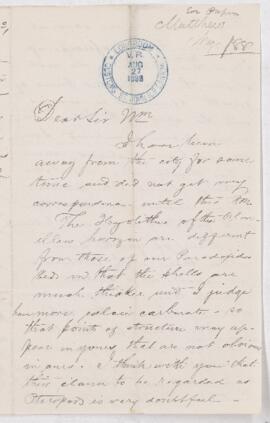 Matthew
AUG
27
1888
Dear Sir Wm
I have been
away from the city for some
time and did not get my
correspondence until the
The Hyolithes of the
horizon are different
from those of our Paradoxides
beds in that the shells are
much thicker and I judge
have more calcic carbonate - so
that points of structure may ap-
pear in yours, that are not obvious
in ours. I think with you that
their claim to be regarded as
Pteropods is very doubtful -